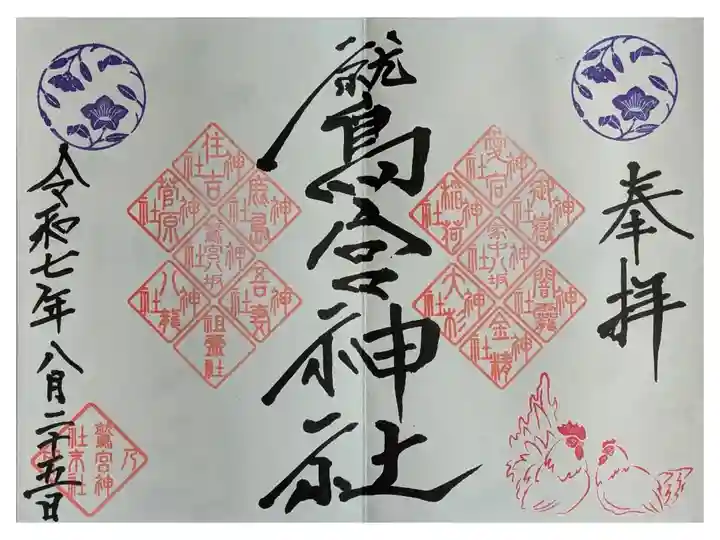 奉拝
鷲宮神社
愛宕神社
御嶽神社
闇龗神社
金精神社
大杉神社
稲荷神社
家中八坂
住吉神社
鹿島神社
吾妻神社
祖霊社
八龍神社
菅原神社
鷲宮八坂
令和七年八月二十五日
鷲宮神
社末社
乃